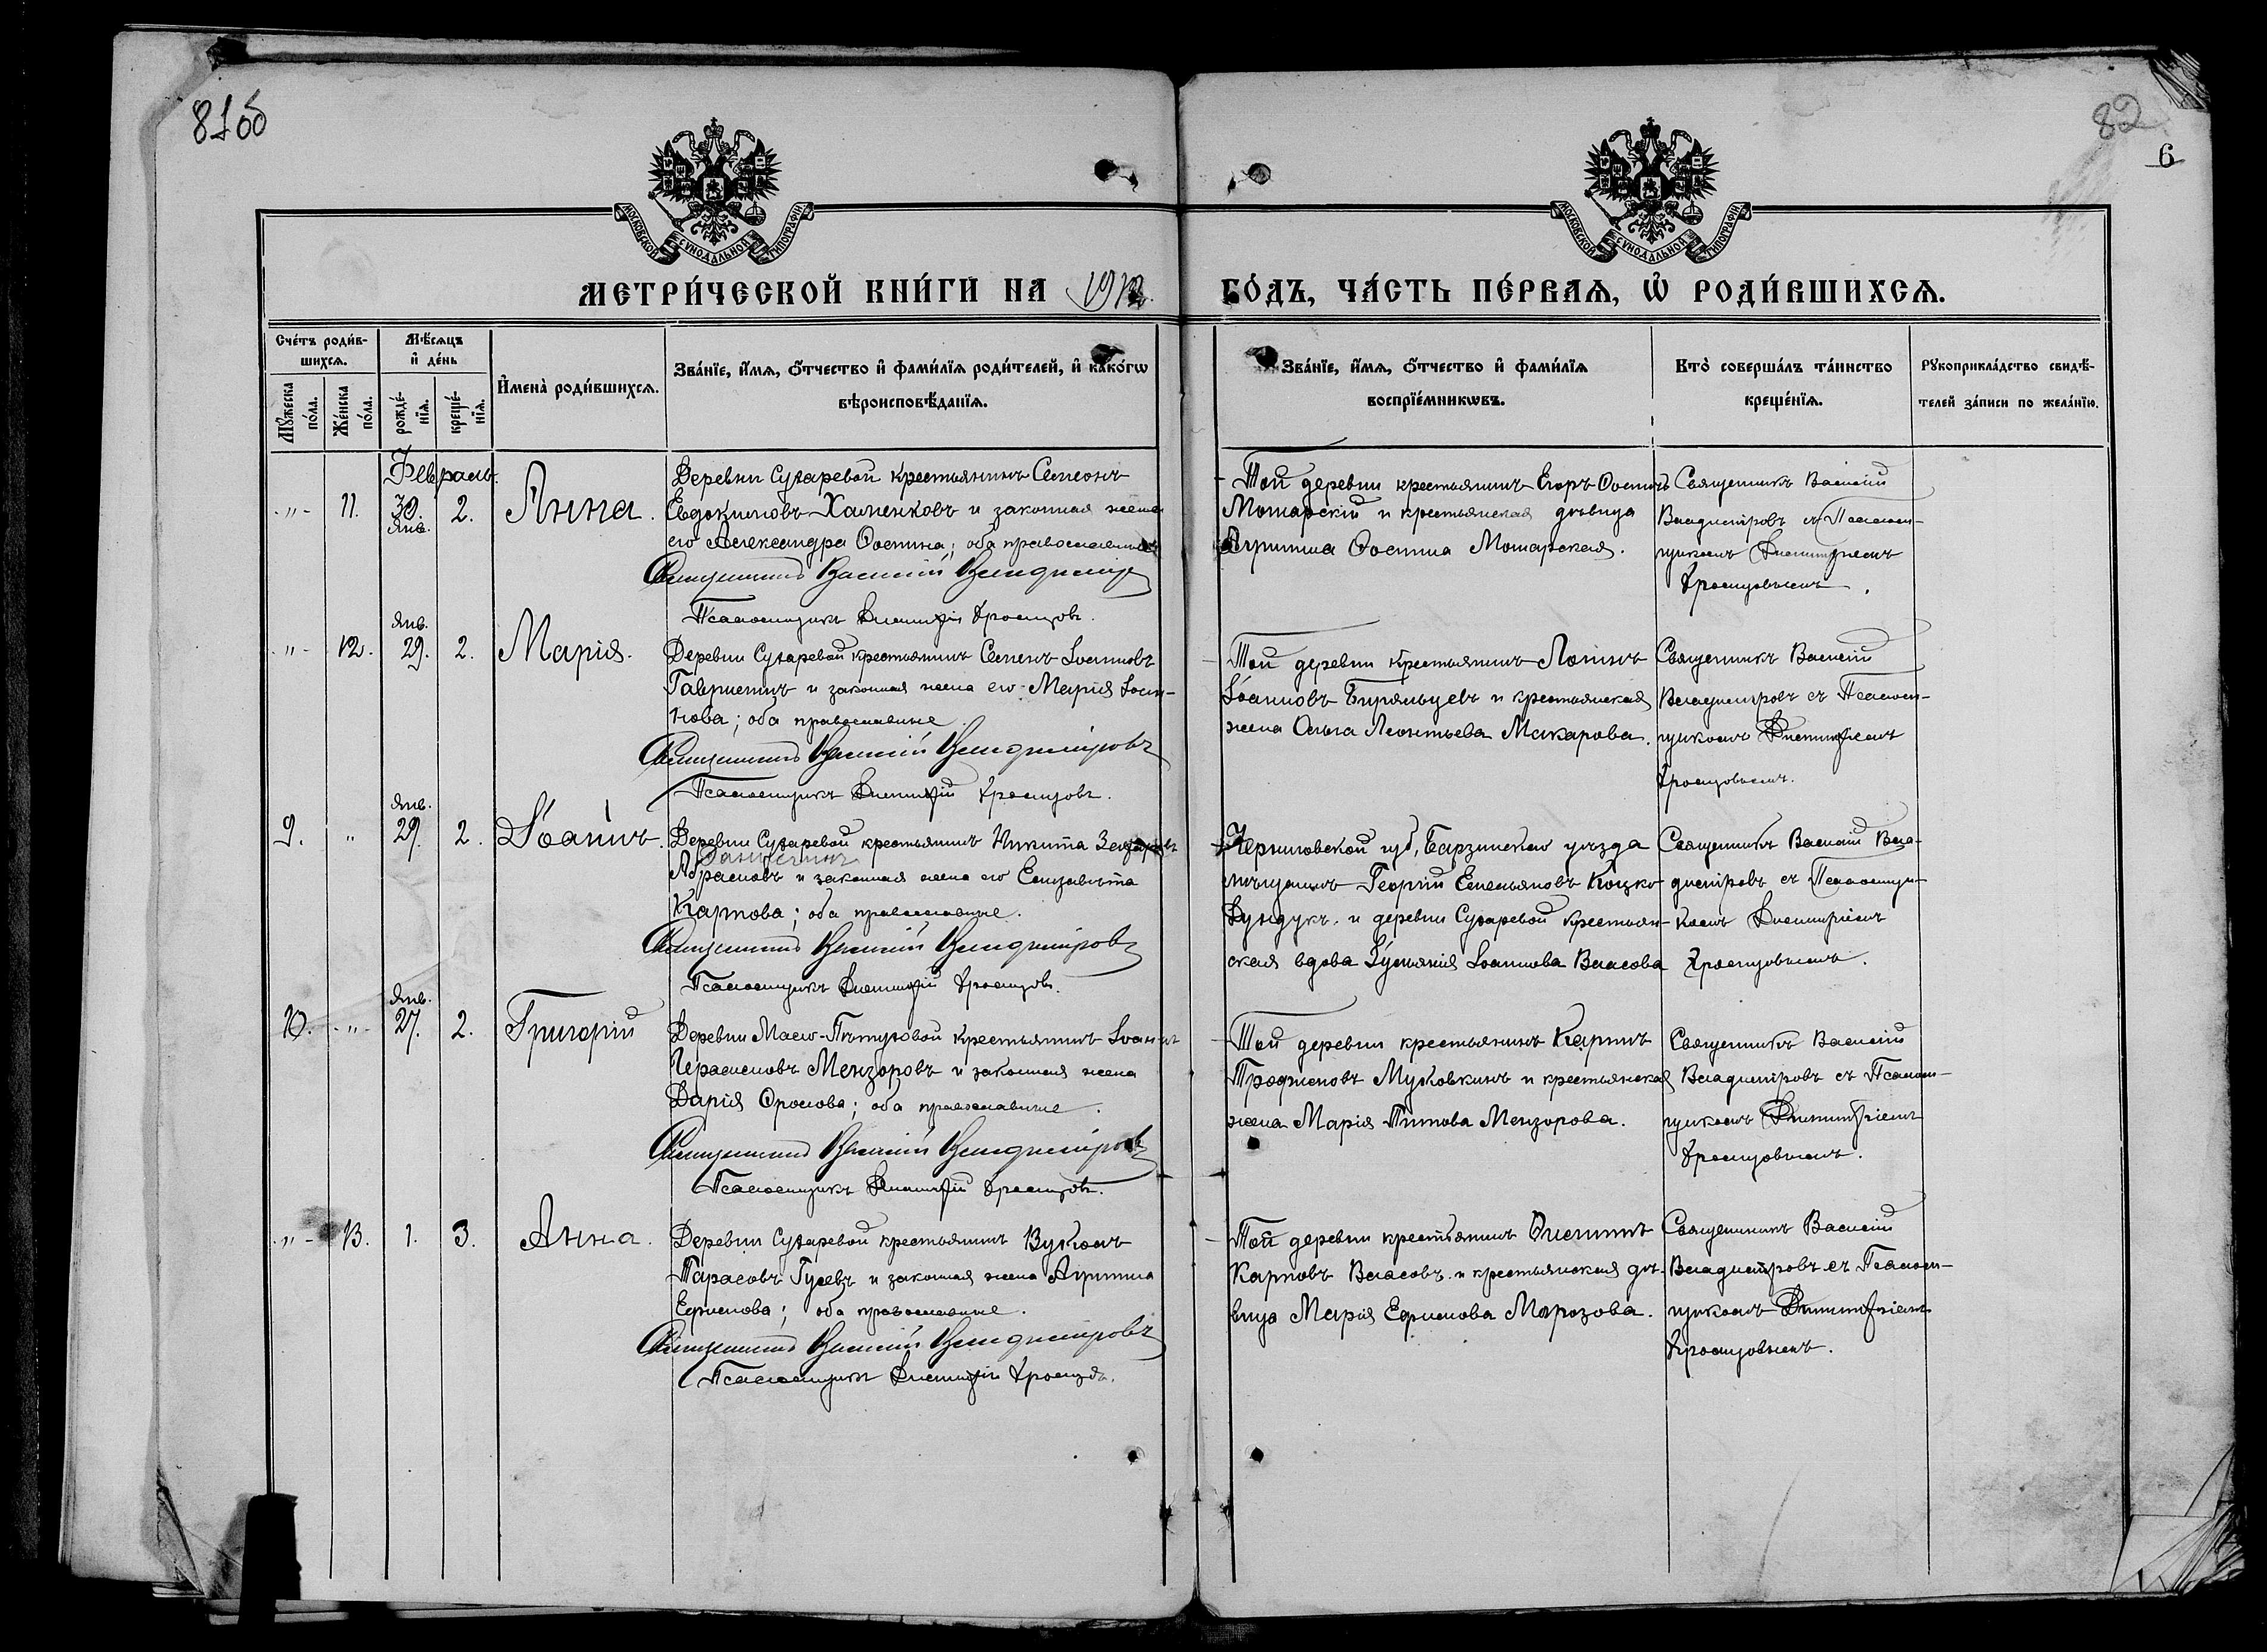 81об
82
6
МОСКОВСКОЙ СѴНОДАЛЬНОЙ ТИПОГРАФІИ
МОСКОВСКОЙ СѴНОДАЛЬНОЙ ТИПОГРАФІИ
МЕТРИ́ЧЕСКОЙ КНИ́ГИ НА 1912 ГО́ДЪ, ЧА́СТЬ ПЕ́РВАЯ, Ѡ҆ РОДИ́ВШИХСЯ.
Сче́тъ роди́в-
шихся.
Мꙋ́жеска
по́ла.
Же́нска
по́ла.
Мѣ́сяцъ
и҆ де́нь
рожде́-
нїя.
креще́-
нїя.
И҆мена̀ роди́вшихся.
Зва́нїе, и҆́мя, ѻ҆́тчество и҆ фами́лїя роди́телей, и҆ како́гѡ
вѣроисповѣ́данїя.
Зва́нїе, и҆́мя, ѻ҆́тчество и҆ фами́лїя
воспрїе́мникѡвъ.
Кто̀ соверша́лъ та́инство
креще́нїя.
Рꙋкоприкла́дство свидѣ́-
телей за́писи по жела́нїю.
Февраль.
-"- 11. 30. Янв. 2. Анна.
Деревни Сухаревой крестьянинъ Симеонъ
Евдокимовъ Хаменковъ и законная жена
его Александра Фомина; оба православные
Священникъ Василій Владиміровъ
Псаломщикъ Димитрій Кроитовъ.
Той деревни крестьянинъ Егоръ Фоминъ
Моиарскій и крестьянская дѣвица
Агрипина Фомина Моиарская.
Священникъ Василій
Владиміровъ съ Псалом-
щикомъ Димитріемъ
-"- 12. Янв. 29. 2. Марія.
Деревни Сухаревой крестьянинъ Семенъ Іоанновъ
Гавриленъ и законная жена его Марія Іоан-
нова; оба православные
Священникъ Василій Владиміровъ
Псаломщикъ Димитрій
Той деревни крестьянинъ Логинъ
Іоанновъ Бирюльцевъ и крестьянская
жена Ольга Леонтьева Макарова.
Священникъ Василій
Владиміровъ съ Псалом-
щикомъ Димитріемъ
9. " Янв. 29. 2. Іоаннъ.
Деревни Сухаревой крестьянинъ Никита
Абрамовъ и законная жена его Елизавета
Карпова; оба православные.
Священникъ Василій Владиміровъ
Псаломщикъ Димитрій
Черниговской губ, Барзинскаго уѣзда
мѣщанинъ Георгій Емельяновъ Коцко-
и деревни Сухаревой крестьян-
ская вдова Іуліанія Іоаннова Власова
Священникъ Василій Вла-
диміровъ съ Псаломщи-
комъ Димитріемъ
10. -"- Янв. 27. 2. Григорій
Деревни Мало-Пѣтуховой крестьянинъ Іоаннъ
Герасимовъ Мензоровъ и законная жена
Дарія Фролова; оба православные.
Священникъ Василій Владиміровъ
Псаломщикъ Димитрій
Той деревни крестьянинъ Карпъ
Трофимовъ Мужовкинъ и крестьянская
жена Марія Титова Мензорова.
Священникъ Василій
Владиміровъ съ Псалом-
щикомъ Димитріемъ
-"- 13. 1. 3. Анна.
Деревни Сухаревой крестьянинъ Вуколъ
Тарасовъ Гусевъ и законная жена Агрипина
Ефимова; оба православные.
Священникъ Василій Владиміровъ
Псаломщикъ Димитрій
Той деревни крестьянинъ Филиппъ
Карповъ Власовъ и крестьянская дѣ-
вица Марія Ефимова Марозова.
Священникъ Василій
Владиміровъ съ Псалом-
щикомъ Димитріемъ